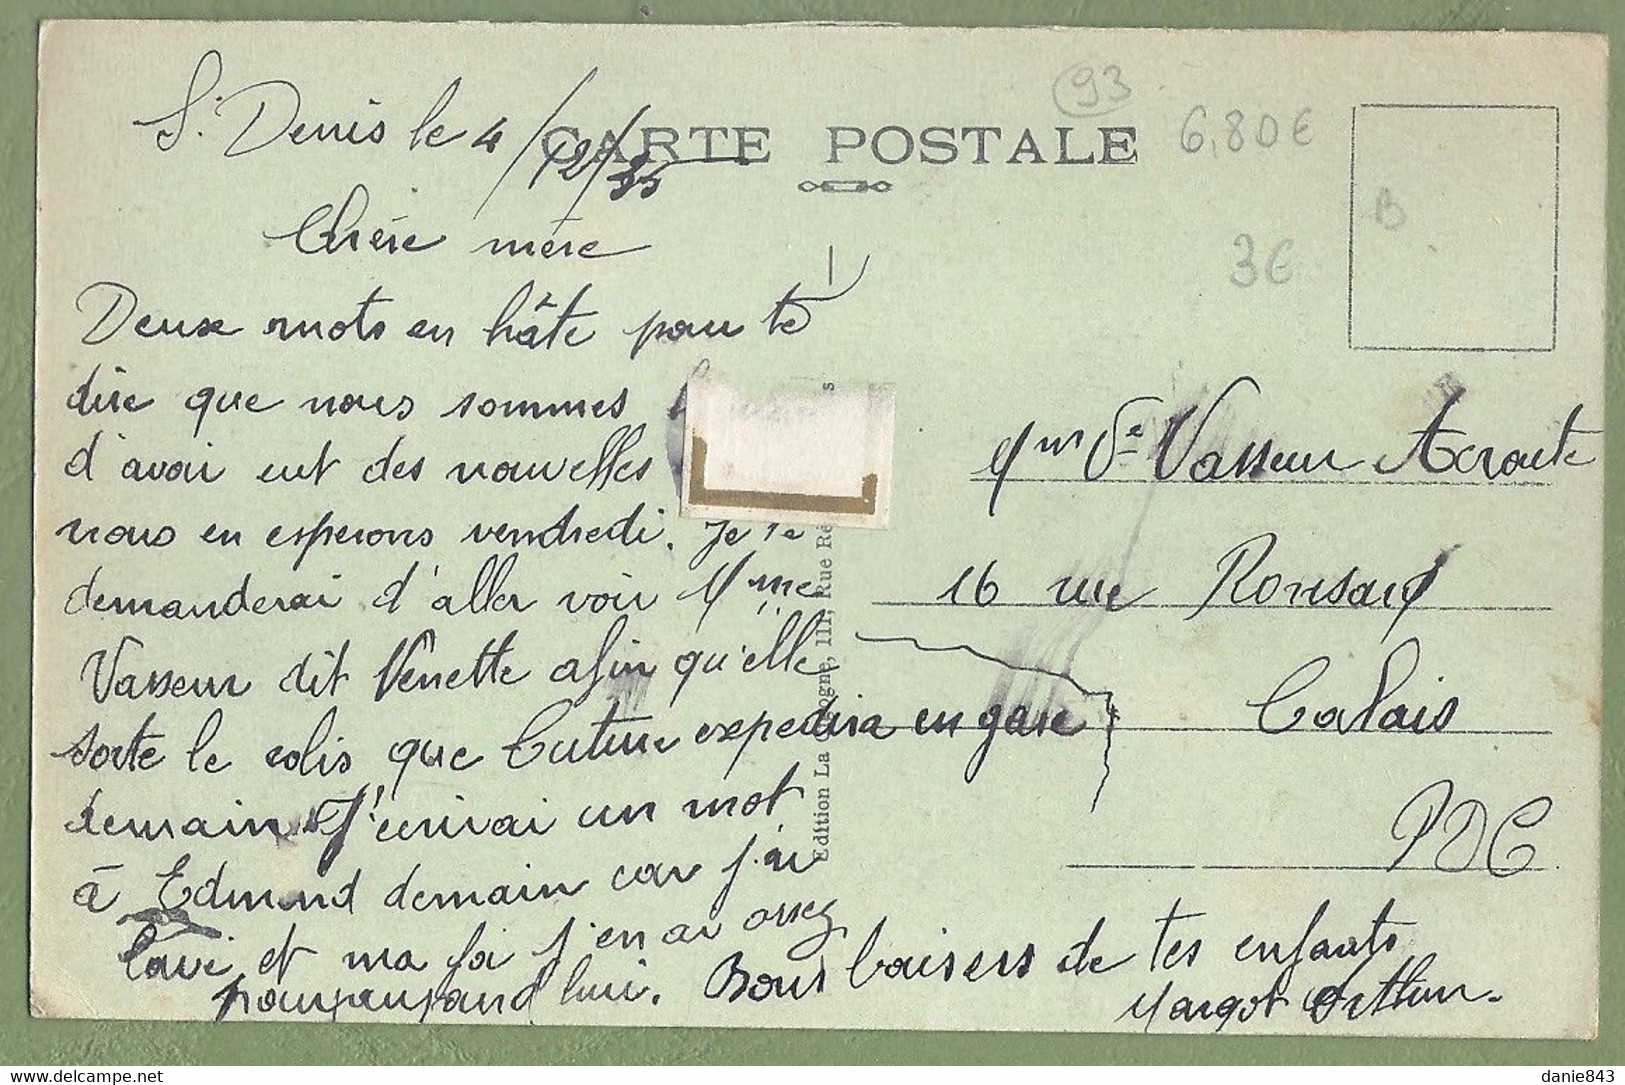 S. Denis le 4/12/35
CARTE POSTALE
93
6,80€
3€
B
Chère mère
Deux mots en hâte pour te
dire que nous sommes
d'avoir eut des nouvelles
nous en esperons vendredi. Je te
demanderai d'aller voir Mme
Vasseur dit Venette afin qu'elle
sorte le colis que expedira en gare
demain J'ecrirai un mot
à Edmond demain car j'ai
lavé et ma foi j'en ai assez
pour hui. Bons baisers de tes enfants
Margot Arthur.
Mm Ve Vasseur
16 rue Ronsard
Calais
PDC
Edition La Cigogne, 111, Rue Ré s
delcampe.net
danie843